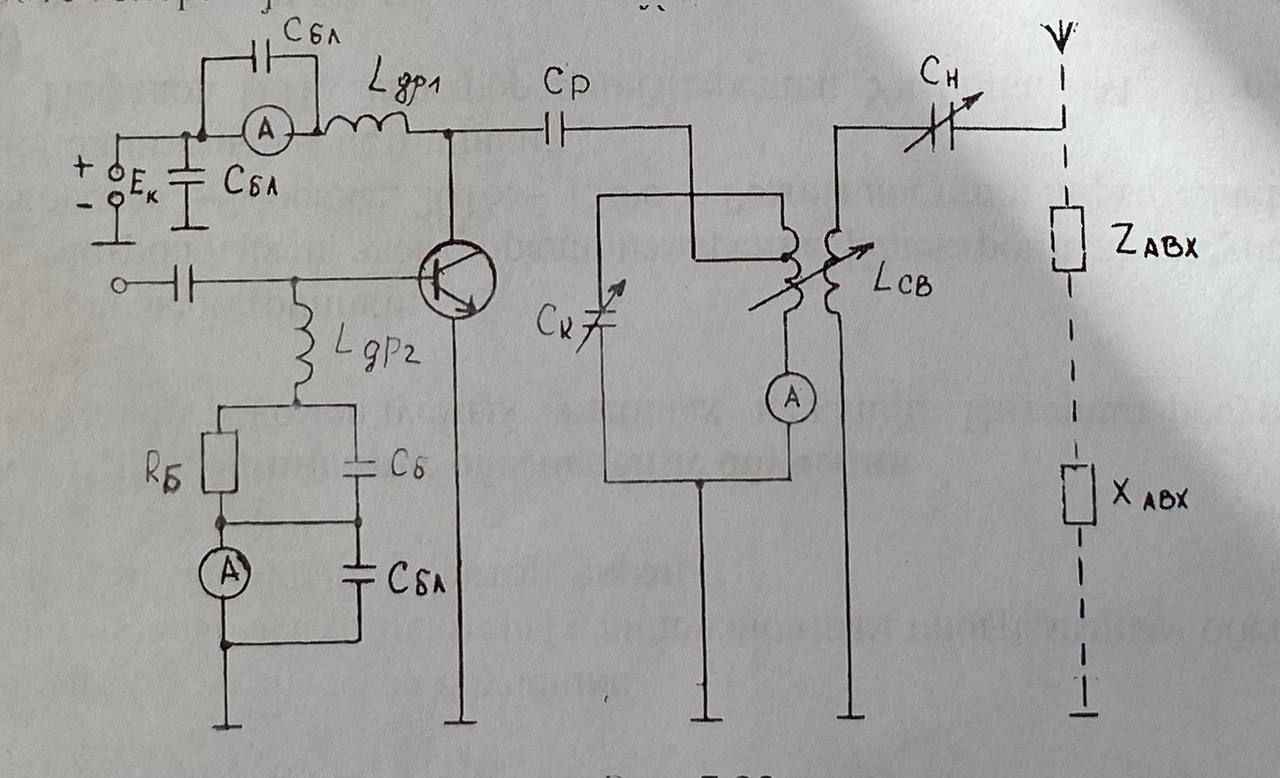 Cбл
Lдр1
Cр
Cн
A
+
-
Eк
Cбл
Zавх
Lсв
Cк
Lдр2
A
Rб
Cб
Xавх
A
Cбл